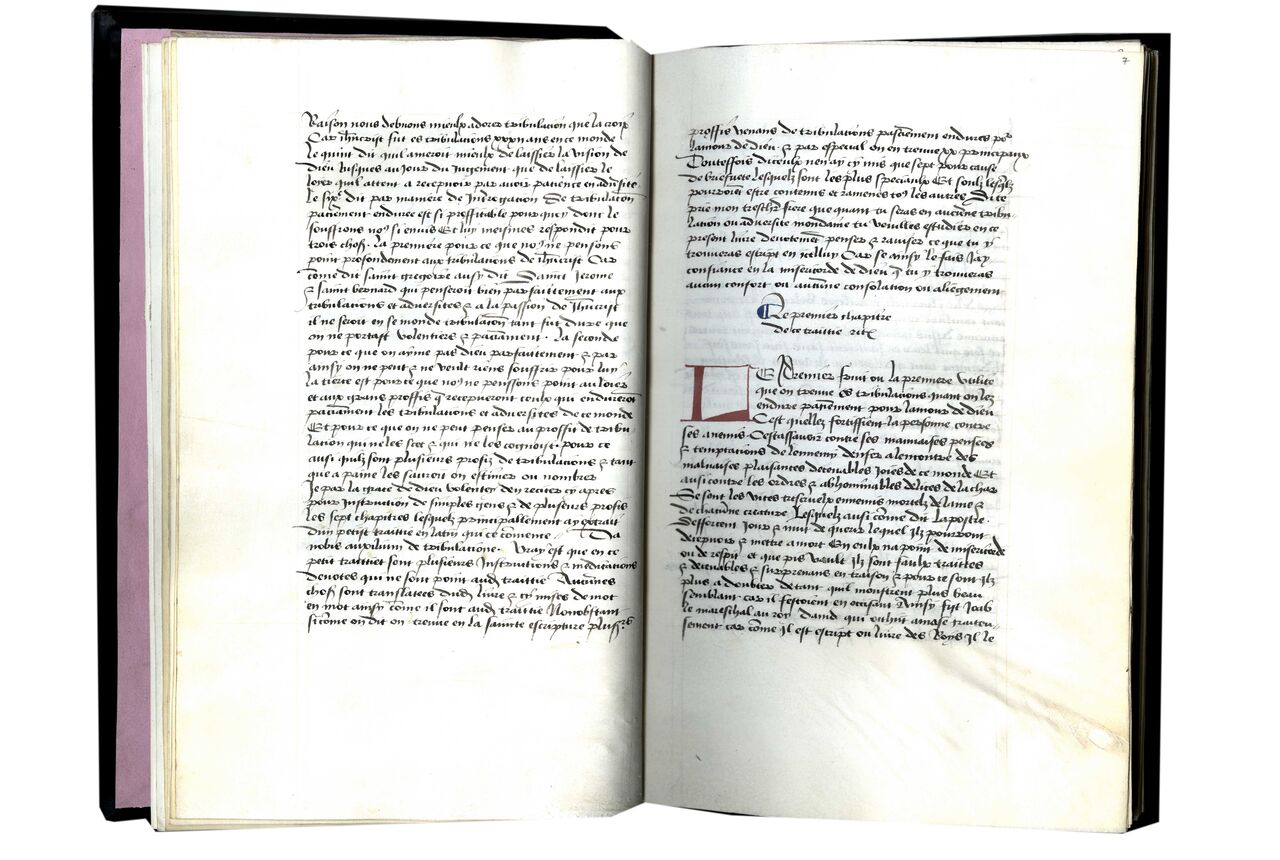 Raison nous debuons mieulx adorer tribulacion que la croix
Car ihūcrist fut es tribulacions xxxij ans en ce monde
Le quint dit quil ameroit mieulx delaissier la vision de
dieu iusques au Jour du Jugement que delaissier le
loyer quil attent a recepuoir par auoir patience en adūsité
Le sixe dit par maniere de Interogacion Se tribulacion
paciemēt enduree est si proffitable pour quoy dont le
souffrons noꝰ si enuis Et luy meismes respondit pour
trois choses. La premiere pour ce que noꝰ ne pensons
point profondement aux tribulacions de ihūcrist Car
cōme dit saint gregoire aussy dit Saint Jerome
⁊ saint bernard qui penseroit bien parfaittement aux
tribulacions et adversites ⁊ a la passion de Ihūcrist
il ne seroit en se monde tribulacion tant fut dure que
on ne portast volentiers ⁊ paciāment. La seconde
pour ce que on ayme pas dieu parfaittement ⁊ par
ainsy on ne peut ⁊ ne veult riens souffrir pour luy
La tierce est pour ce que noꝰ ne penssons point au loier
et aux grans proffis q̄ recepueront ceulx qui endureront
paciāment les tribulacions et adversites de ce monde
Et pour ce que on ne peut penser au proffit de tribu
lacion qui ne les scet ⁊ qui ne les cognoist. pour ce
aussi quilz sont plusieurs profiz de tribulacions ⁊ tant
que a paine les sauroit on estimer ou nombrer
Je par la grace de dieu volenty den reciter cy apres
pour Instruction de simples gens ⁊ de plusieurs profis
les sept chapitres lesquelz principallement ay extrait
dun petist traittie en latin qui ce cōmence Da
nobis auxilium de tribulatione. Vray est que en ce
petit traittiet sont plusieurs Instructions ⁊ meditacions
deuotes qui ne sont point audit traittie Aucunes
choses sont translatees dudit liure ⁊ cy mises de mot
en mot ainsy cōme il sont audit traittie Nonobstant
si cōme on dit on treuue en la sainte escripture plusrs
7
proffis venans de tribulations paciēment endures por
lamour de dieu. ⁊ par especial on en treuue xx principaux
Touttesfois diceulx nen ay cy mis que sept pour cause
de briefuete lesquelz sont les plus speciaulx Et soubz lesqlz
pourroient estre contenus et ramenes toꝰ les autres Si te
prie mon treschr frere que quant tu seras en aucune tribu
lation ou adversite mondaine tu veuilles estudier en ce
present liure deuotement penser ⁊ rauiser ce que tu y
trouueras escript en icelluy Car se ainsy le fais Jay
confiance en la misericorde de dieu q̄ tu y trouueras
aucun confort ou aucune consolation ou aliegement
Le premier chapitre
de ce traittie
LE Premier fruit ou la premiere vtilite
que on treuue es tribulacions quant on lez
endure paciēment pour lamour de dieu
Cest quellez fortiffient la personne contre
ses anemis. Cestassauoir contre ses mauuaises pensees
⁊ temptacions de lennemy denfer a lencontre des
malvaises plaisantes deceuables Joies de ce monde Et
aussi contre les ordres ⁊ abhominables delices de la char
Se sont les vices trescruelx ennemis mortelz de lame ⁊
de chacune creature Lesquelz aussi cōme dit Lapostre.
Sefforcent Jour ⁊ nuit de querir lequel Ilz pourront
decepuoir ⁊ mettre a mort En eulx na point de misericorde
ou de respit. et que pis vault Ilz sont faulx traittes
⁊ deceuables ⁊ surprenans en traison ⁊ pour ce sont Ilz
plus a doubter de tant quil monstrent plus beau
semblant. car il festoient en occisant Ainsy fist Joab
le mareschal au roy dauid qui occhist amase traiteu-
sement car cōme Il est escript ou liure des Roys Il le